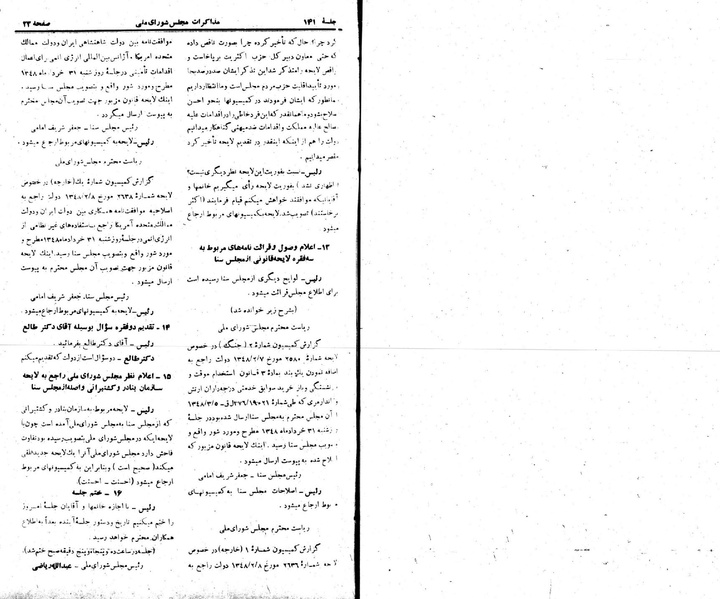 جلسهٔ ۱۴۱ مذاکرات مجلس شورای ملی صفحه ۲۳
کرد چرا؟ حال که تأخیر کرده چرا صورت ناقص داده
که حتی معاون دبیر کل حزب اکثریت برپاخاست و
ناقص لایحه را متذکر شد این تذکر ایشان صددرصد بجا
مورد تأیید اقلیت حزب مردم مجلس است و ما انتظار داریم
همانطور که ایشان فرمودند در کمیسیونها بنحو احسن
صالح عالیه مملکت و اقدامات ضد میهنی گناهکار میدانیم
دولت را هم از اینکه اینقدر در تقدیم لایحه تأخیر کرد
مقصر میدانیم .
رئیس ـ نسبت بفوریت این لایحه نظر دیگری نیست؟
( اظهاری نشد ) بفوریت لایحه رأی میگیریم خانمها و
آقایانیکه موافقند خواهش میکنم قیام فرمایند ( اکثر
برخاستند ) تصویب شد. لایحه بکمیسیونهای مربوط ارجاع
میشود
۱۳ـ اعلام وصول و قرائت نامه‌های مربوط به
سه فقره لایحه قانونی از مجلس سنا
رئیس ـ لوایح دیگری از مجلس سنا رسیده است
برای اطلاع مجلس قرائت میشود .
(بشرح زیر خوانده شد)
ریاست محترم مجلس شورای ملی
گزارش کمیسیون شمارهٔ ۲ ( جنگ ) در خصوص
لایحه شمارهٔ ۲۵۸۰ مورخ ۱۳۴۸/۲/۷ دولت راجع به
اضافه نمودن یک بند بمادهٔ ۳ قانون استخدام موقت و
بازنشستگی و باز خرید سوابق خدمتی درجه‌داران ارتش
آن مجلس محترم به مجلس سنا ارسال شده بود در جلسهٔ
روز شنبه ۳۱ خرداد ماه ۱۳۴۸ مطرح و مورد شور واقع و
تصویب مجلس سنا رسید . اینک لایحه قانون مزبور که
اصلاح شده به پیوست ارسال میشود .
رئیس مجلس سنا ـ جعفر شریف امامی
رئیس ـ اصلاحات مجلس سنا به کمیسیونهای
مربوط ارجاع میشود .
ریاست محترم مجلس شورای ملی
گزارش کمیسیون شمارهٔ ۱ (خارجه) در خصوص
لایحه ۲۶۳۶ مورخ ۱۳۴۸/۲/۸ دولت راجع به
موافقتنامه بین دولت شاهنشاهی ایران و دولت ممالک
متحده امریکا ، آژانس بین‌المللی انرژی اتمی برای اعمال
اقدامات تأمینی در جلسهٔ روز شنبه ۳۱ خرداد ماه ۱۳۴۸
مطرح و مورد شور واقع و بتصویب مجلس سنا رسید .
اینک لایحه قانون مزبور جهت تصویب آن مجلس محترم
به پیوست ارسال میگردد .
رئیس مجلس سنا ـ جعفر شریف امامی
رئیس ـ لایحه به کمیسیونهای مربوط ارجاع میشود .
ریاست محترم مجلس شورای ملی
گزارش کمیسیون شمارهٔ یک (خارجه) در خصوص
لایحه شمارهٔ ۲۶۳۸ مورخ ۱۳۴۸/۲/۸ دولت راجع به
اصلاحیه موافقتنامه همکاری بین دولت ایران و دولت
ممالک متحده آمریکا راجع به استفاده‌های غیر نظامی از
انرژی اتمی در جلسهٔ روز شنبه ۳۱ خرداد ماه ۱۳۴۸ مطرح و
مورد شور واقع و بتصویب مجلس سنا رسید. اینک لایحه
قانون مزبور جهت تصویب آن مجلس محترم به پیوست
ارسال میشود .
رئیس مجلس سنا ـ جعفر شریف امامی
رئیس ـ لایحه به کمیسیونهای مربوط ارجاع میشود.
۱۴ ـ تقدیم دو فقره سؤال بوسیله آقای دکتر طالع
رئیس ـ آقای دکتر طالع بفرمائید .
دکتر طالع ـ دو سؤال است از دولت که تقدیم میکنم
۱۵ ـ اعلام نظر مجلس شورای ملی راجع به لایحه
سازمان بنادر و کشتیرانی واصله از مجلس سنا
رئیس ـ لایحه مربوط به سازمان بنادر و کشتیرانی
که از مجلس سنا به مجلس شورای ملی آمده است چون با
لایحه اینکه در مجلس شورای ملی بتصویب رسیده بود تفاوت
فاحش دارد مجلس شورای ملی آنرا یک لایحه جدید تلقی
میکند( صحیح است ) و بنابراین به کمیسیونهای مربوط
ارجاع میشود (احسنت ـ احسنت).
۱۶ ـ ختم جلسه
رئیس ـ با اجازه خانمها و آقایان جلسهٔ امروز
را ختم میکنیم تاریخ و دستور جلسه آینده بعداً به اطلاع
همکاران محترم خواهد رسید .
(جلسه در ساعت ده و پنجاه و پنج دقیقه صبح ختم شد).
رئیس مجلس شورای ملی ـ عبدالله ریاضی